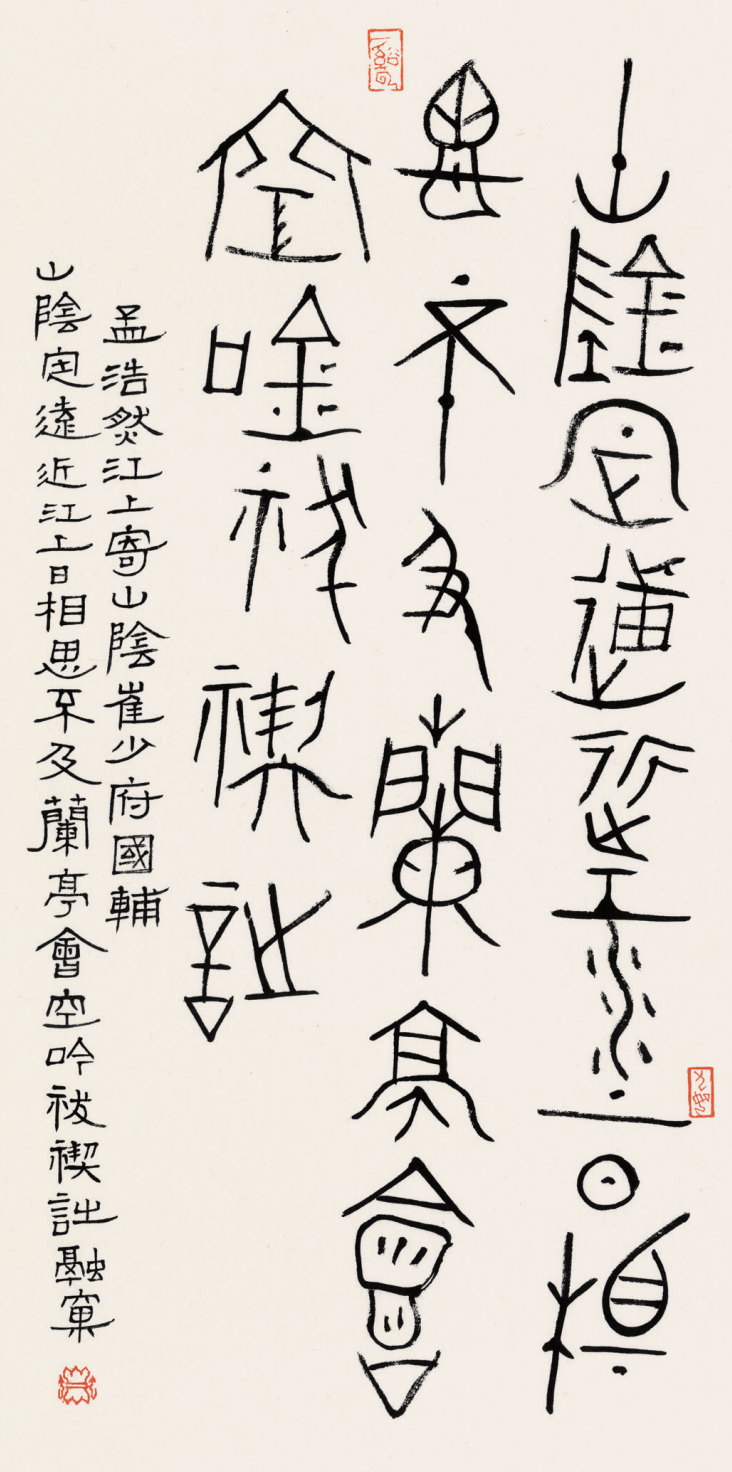 山陰定遠近江上日相
思不及蘭亭會
空吟祓禊詩
孟浩然江上寄山陰崔少府國輔
山陰定遠近江上日相思不及蘭亭會空吟祓禊詩融